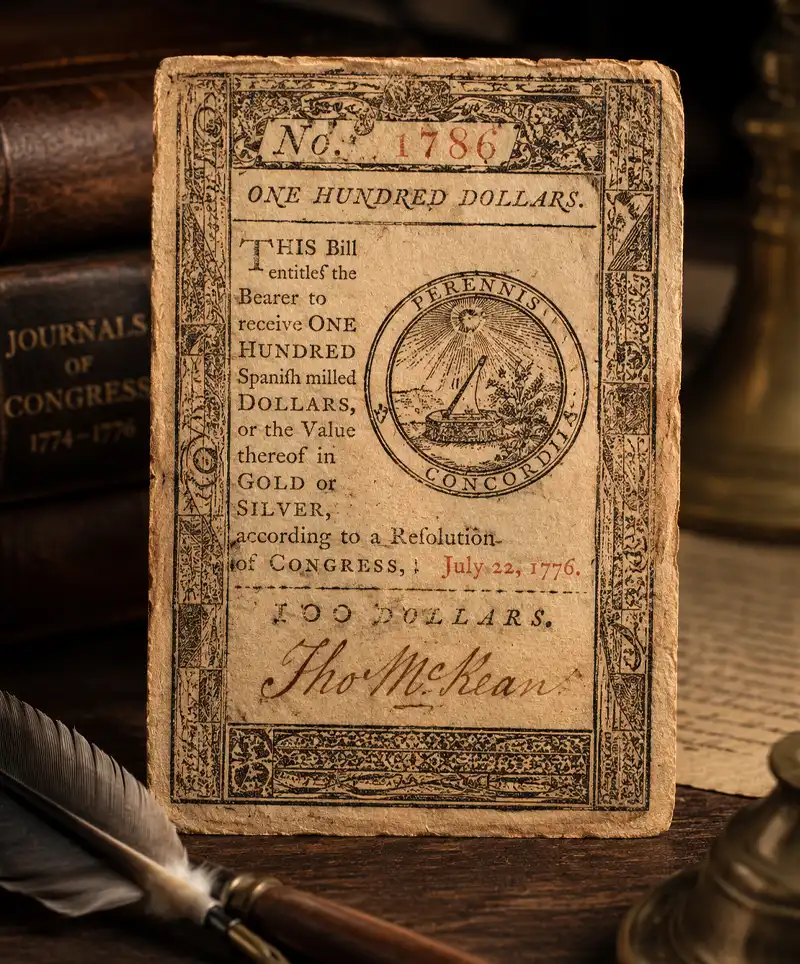 No. 1786
ONE HUNDRED DOLLARS.
THIS Bill
entitleſ the
Bearer to
receive ONE
HUNDRED
Spaniſh milled
DOLLARS,
or the Value
thereof in
GOLD or
SILVER,
according to a Reſolution
of CONGRESS, July 22, 1776.
PERENNIS
CONCORDIIA
100 DOLLARS.
Tho Mc.Kean
JOURNALS
OF
CONGRESS
1774–1776